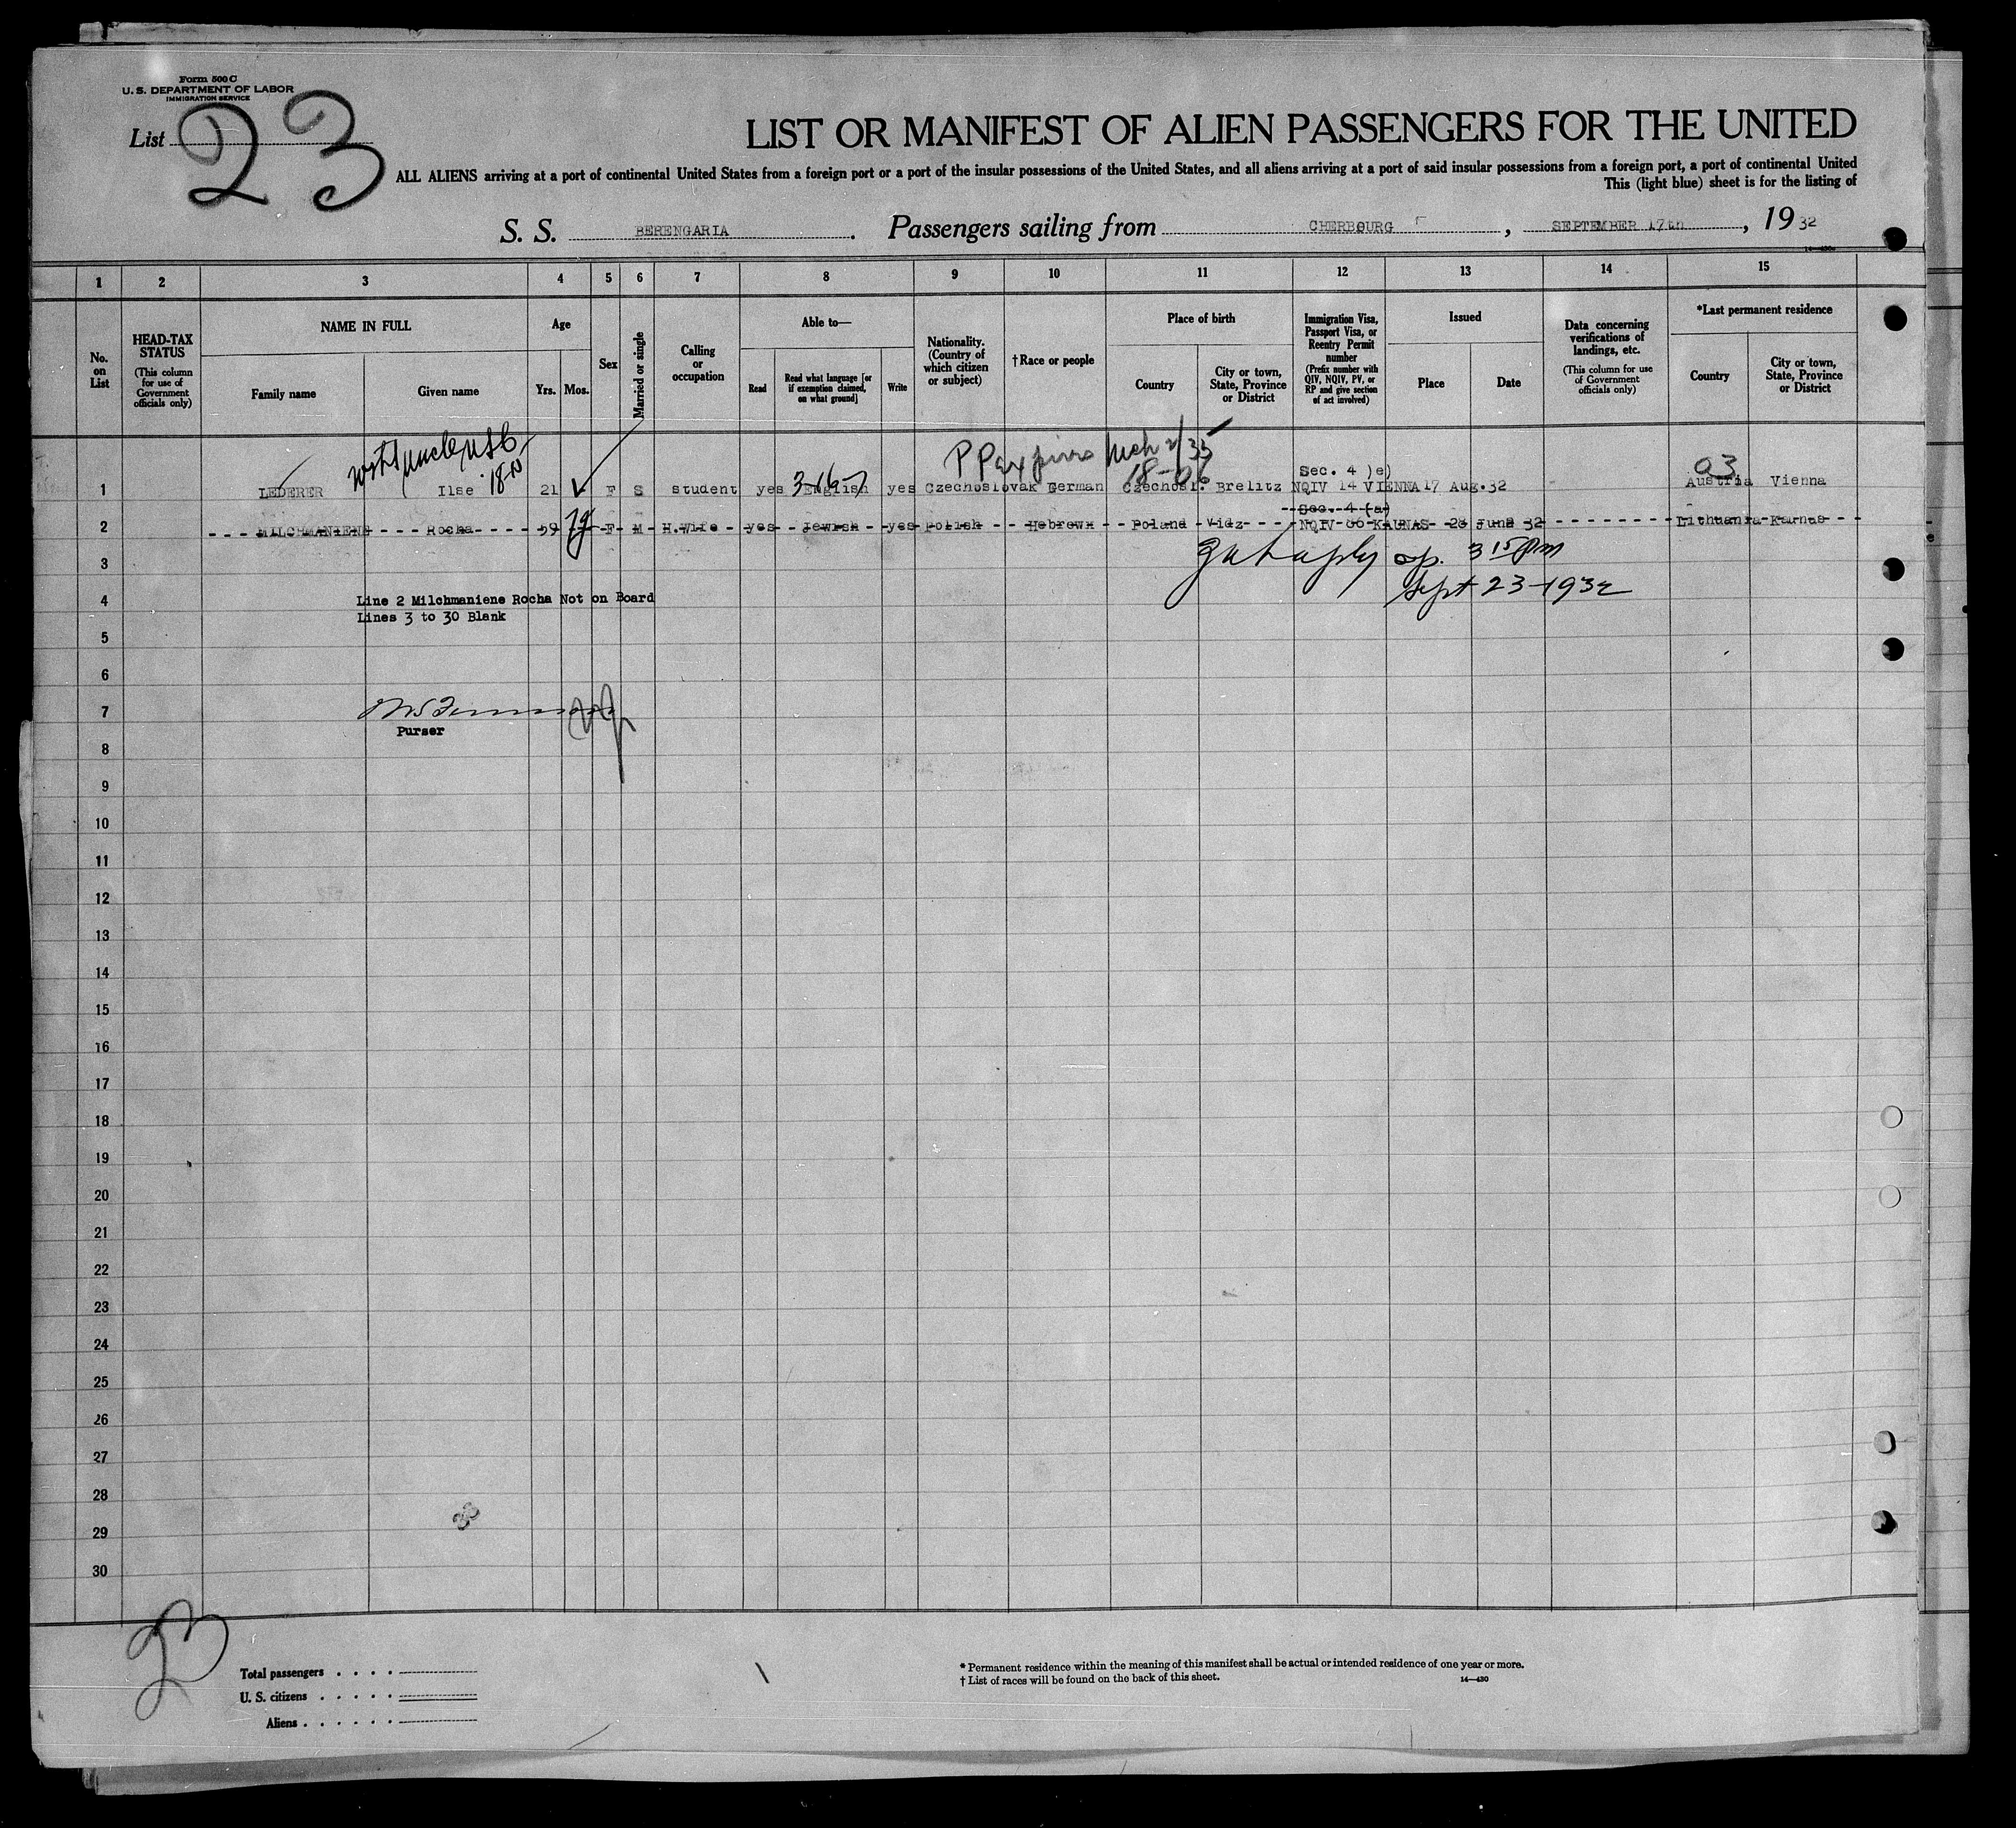 Form 500 C
U. S. DEPARTMENT OF LABOR
IMMIGRATION SERVICE
List 23
LIST OR MANIFEST OF ALIEN PASSENGERS FOR THE UNITED
ALL ALIENS arriving at a port of continental United States from a foreign port or a port of the insular possessions of the United States, and all aliens arriving at a port of said insular possessions from a foreign port, a port of continental United
This (light blue) sheet is for the listing of
S. S. BERENGARIA. Passengers sailing from CHERBOURG, SEPTEMBER 17th, 19 32
1 2 3 4 5 6 7 8 9 10 11 12 13 14 15
No. on List
HEAD-TAX STATUS
(This column for use of Government officials only)
NAME IN FULL
Family name Given name
Age
Yrs. Mos.
Sex
Married or single
Calling or occupation
Able to—
Read
Read what language [or if exemption claimed, on what ground]
Write
Nationality. (Country of which citizen or subject)
†Race or people
Place of birth
Country
City or town, State, Province or District
Immigration Visa, Passport Visa, or Reentry Permit number
(Prefix number with QIV, NQIV, PV, or RP and give section of act involved)
Issued
Place Date
Data concerning verifications of landings, etc.
(This column for use of Government officials only)
*Last permanent residence
Country
City or town, State, Province or District
P P expires Mch 2/35
18-06
Sec. 4 )e)
03
1 LEDERER Ilse 21 F S student yes English yes Czechoslovak German Czechosl. Brelitz NQIV 14 VIENNA 17 Aug.32 Austria Vienna
Sec. 4 (a)
2 MILCHMANIENE Rocha 59 F M H.Wife yes Jewish yes Polish Hebrew Poland Vidz NQIV 66 KAUNAS 28 June 32 Lithuania Kaunas
3 3 15 pm
Sept 23-1932
4 Line 2 Milchmaniene Rocha Not on Board
Lines 3 to 30 Blank
5
6
7
Purser
8
9
10
11
12
13
14
15
16
17
18
19
20
21
22
23
24
25
26
27
28
29
30
23
Total passengers
U. S. citizens
Aliens
* Permanent residence within the meaning of this manifest shall be actual or intended residence of one year or more.
† List of races will be found on the back of this sheet.
14—430